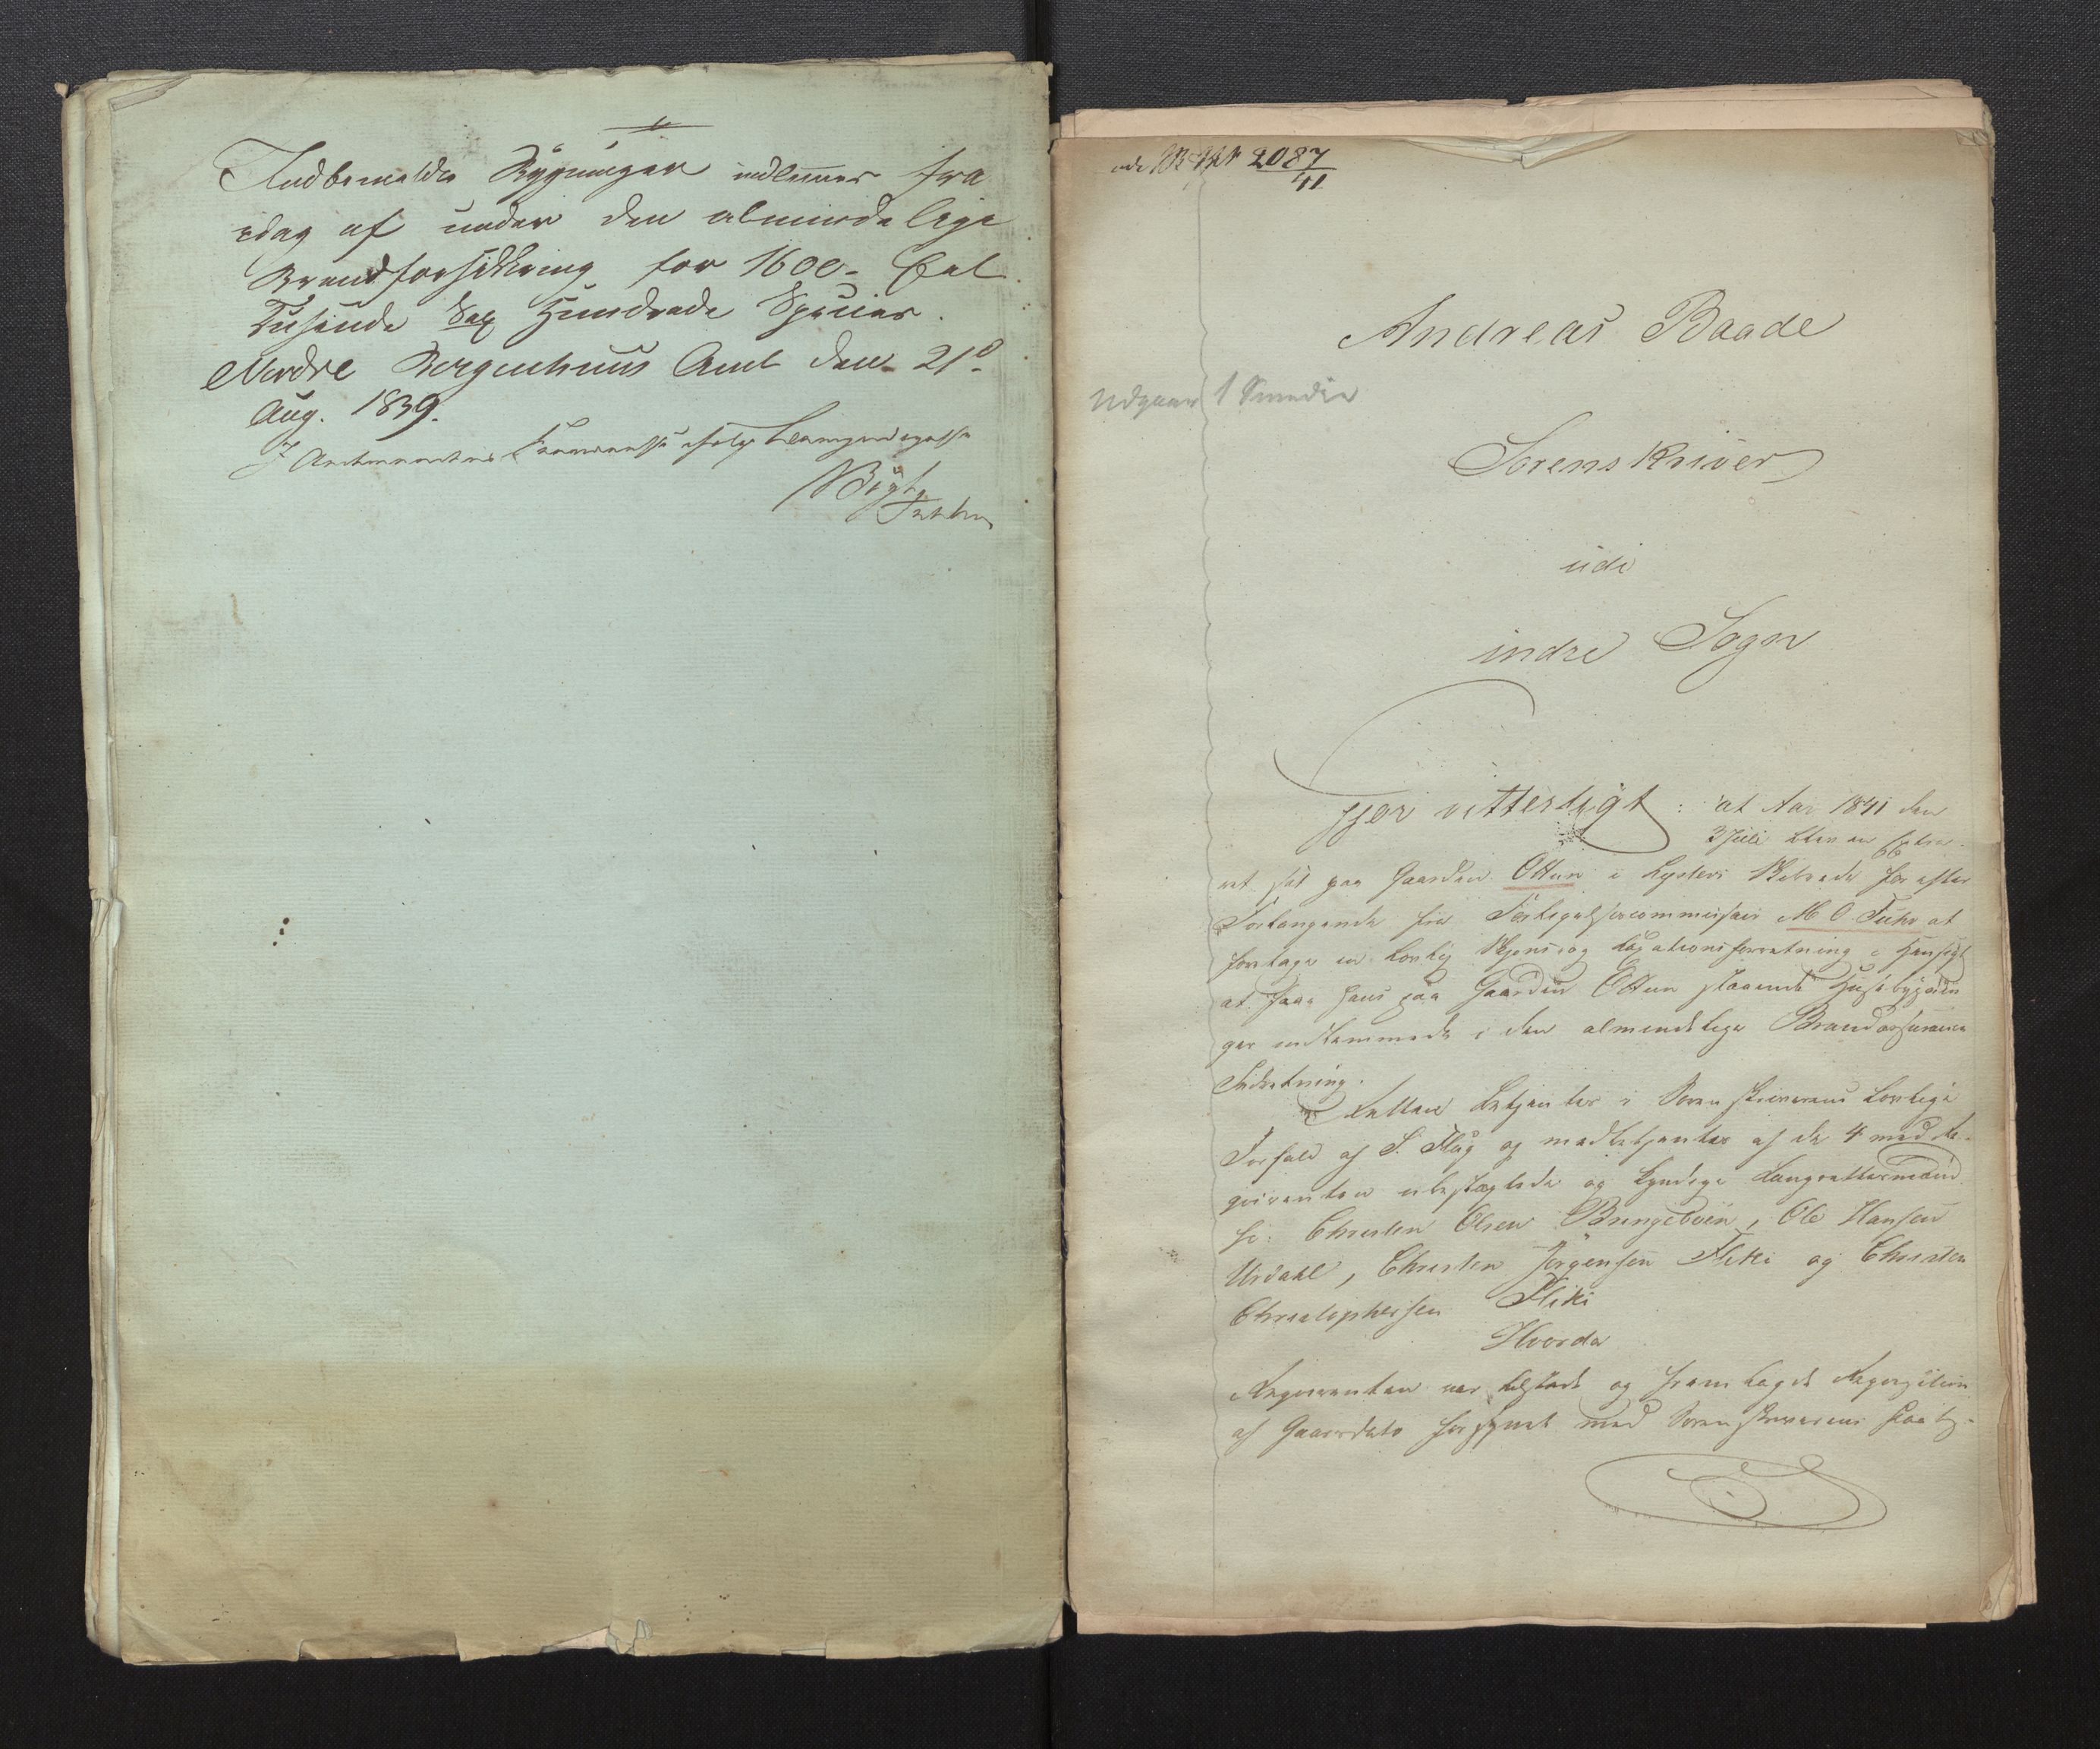 Indbemeldte Bygninger indlemmes fra
idag af under den almindelige
Brandforsikkring for 1600- Eet
Tusinde Sex Hundrede Species.
Nordre Bergenhuus Amt den 21d
Aug. 1839.
I Amtmandens Fraværelse ifølge
2087
41
Andreas Baade
Udgaar 1 Smedie
Sorenskriver
udi
indre Sogn
Gjør vitterligt: at Aar 1841 den
3 Juli blev en
ret sat paa Gaarden Ottun i Lysters Skibrede for efter
Forlangende fra Forligelsescommissair M O. Fuhr at
foretage en lovlig Skjøns og Taxationsforretning i Hensigt
at faae hans paa Gaarden Ottun staaende Huusbygnin
ger indlemmede i den almindelige Brandassurance
Indretning.
Retten betjentes i Sorenskriverens lovlige
Forfald af S. Flug og medbetjentes af de 4 med Re-
qvirenten ubeslægtede og kyndige Laugrettesmænd
so: Christen Olsen Bringebøen, Ole Hansen
Urdahl, Christen Jørgensen Flikki og Christen
Christophersen Flikki
Hvorda
Reqvirenten var tilstæde og fremlagde Reqvisition
af Gaarsdato forsynet med Sorenskriverens